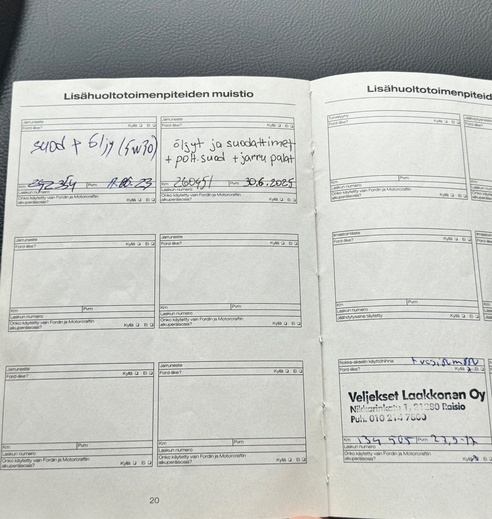 Lisähuoltotoimenpiteiden muistio
Jarruneste
Ford-liike? Kyllä Ei
suod + öljy (5w30)
Km Pvm
Laskun numero
Onko käytetty vain Fordin ja Motorcraftin
alkuperäisosia? Kyllä Ei
Jarruneste
Ford-liike? Kyllä Ei
öljyt ja suodattimet
+ poltt.suod + jarru palat
Km 260451 Pvm 30.6.2025
Laskun numero
Onko käytetty vain Fordin ja Motorcraftin
alkuperäisosia? Kyllä Ei
Jarruneste
Ford-liike? Kyllä Ei
Km Pvm
Laskun numero
Onko käytetty vain Fordin ja Motorcraftin
alkuperäisosia? Kyllä Ei
Jarruneste
Ford-liike? Kyllä Ei
Km Pvm
Laskun numero
Onko käytetty vain Fordin ja Motorcraftin
alkuperäisosia? Kyllä Ei
Jarruneste
Ford-liike? Kyllä Ei
Km Pvm
Laskun numero
Onko käytetty vain Fordin ja Motorcraftin
alkuperäisosia? Kyllä Ei
Jarruneste
Ford-liike? Kyllä Ei
Km Pvm
Laskun numero
Onko käytetty vain Fordin ja Motorcraftin
alkuperäisosia? Kyllä Ei
20
Lisähuoltotoimenpiteid
Ford-liike? Kyllä Ei
Km Pvm
Laskun numero
Onko käytetty vain Fordin ja Motorcraftin
alkuperäisosia? Kyllä Ei
Ford-liike? Kyllä Ei
Km Pvm
Laskun numero
Ford-liike? Kyllä Ei
Veljekset Laakkonen Oy
Nikkarinkatu 1, 21280 Raisio
Puh. 010 214 7600
Km Pvm
Laskun numero
Onko käytetty vain Fordin ja Motorcraftin
alkuperäisosia? Kyllä Ei